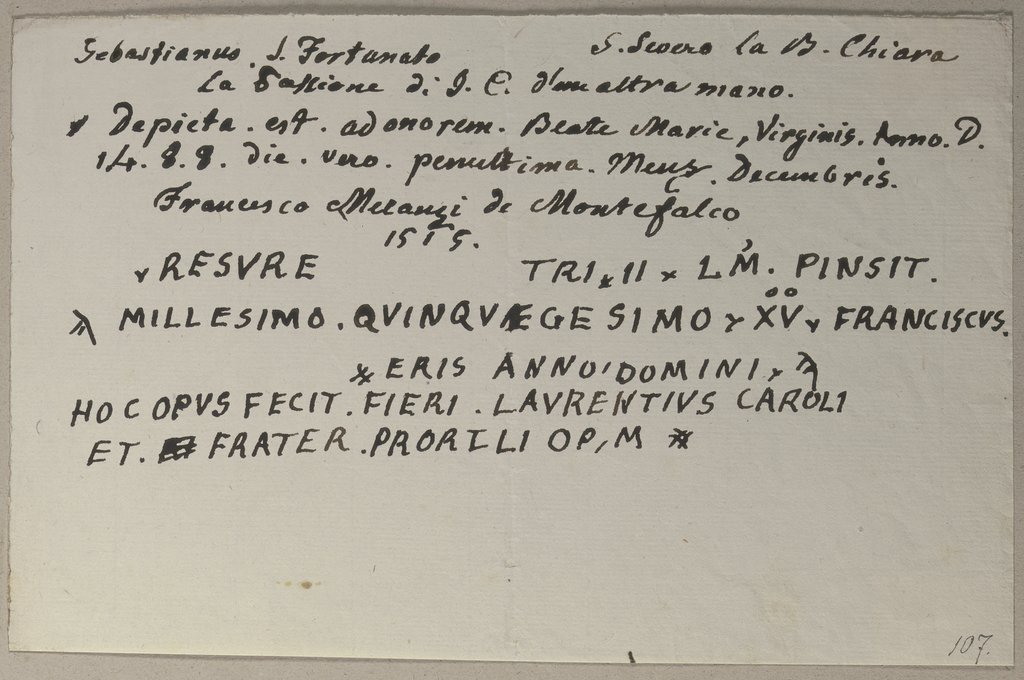 Sebastianus. S. Fortunato S. Severo la B. Chiara
La Passione di J. C. d'un altra mano.
Depicta. est. ad onorem. Beate Marie, Virginis. Anno. D.
14. 8. 8. die. vero. penultima. Mens. Decembris.
Francesco Melanzi de Montefalco
1515.
RESVRE TRI II x LM. PINSIT.
MILLESIMO. QVINQVÆGESIMO XV FRANCISCVS.
ERIS ANNO'DOMINI
HOC OPVS FECIT. FIERI. LAVRENTIVS CAROLI
ET. FRATER. PRORILI OP,M
107.